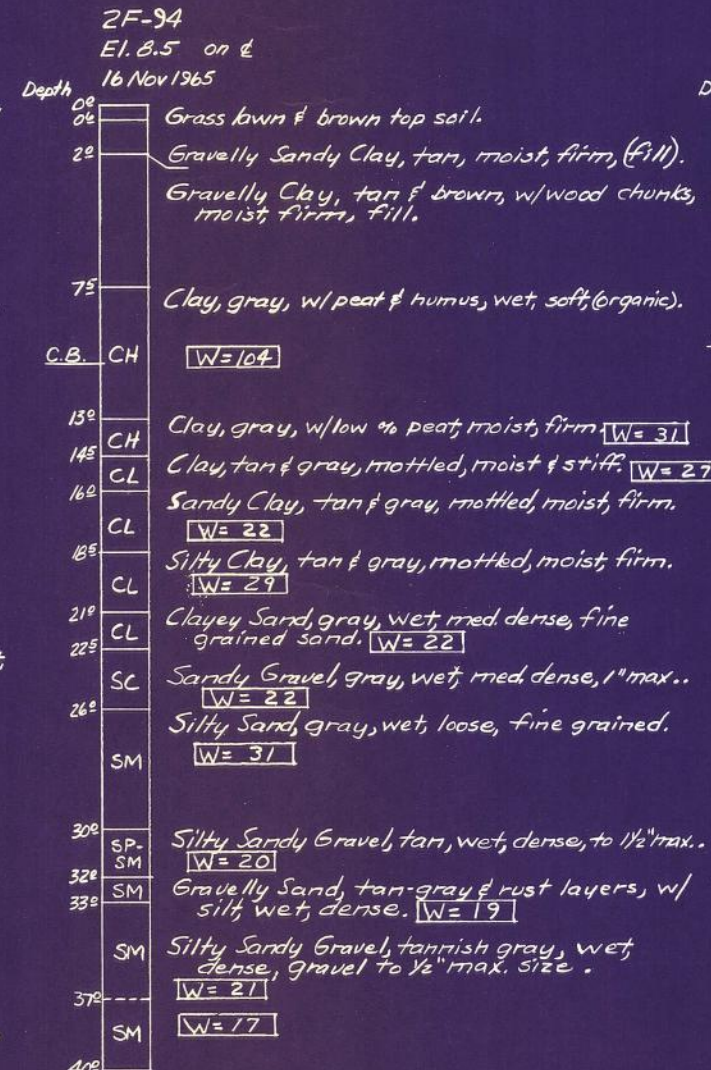 2F-94
El. 8.5 on ¢
16 Nov 1965
Depth
0⁰
0⁴
Grass lawn & brown top soil.
2⁰
Gravelly Sandy Clay, tan, moist, firm, (fill).
Gravelly Clay, tan & brown, w/wood chunks,
moist, firm, fill.
7⁵
Clay, gray, w/peat & humus, wet, soft, (organic).
C.B. CH W=104
13⁰
Clay, gray, w/low % peat, moist, firm. W= 31
CH
14⁵
Clay, tan & gray, mottled, moist & stiff. W= 27
CL
16⁰
Sandy Clay, tan & gray, mottled, moist, firm.
CL W= 22
18⁵
Silty Clay, tan & gray, mottled, moist, firm.
CL W= 29
21⁰
Clayey Sand, gray, wet, med. dense, fine
CL grained sand. W= 22
22⁵
Sandy Gravel, gray, wet, med. dense, 1" max..
SC W= 22
26⁰
Silty Sand, gray, wet, loose, fine grained.
SM W= 31
30⁰
Silty Sandy Gravel, tan, wet, dense, to 1½" max..
SP-
SM W= 20
32⁰
Gravelly Sand, tan-gray & rust layers, w/
SM silt, wet, dense. W= 19
33⁰
SM Silty Sandy Gravel, tannish gray, wet,
dense, gravel to ½" max. size.
W= 21
37⁰
SM W= 17
40⁰